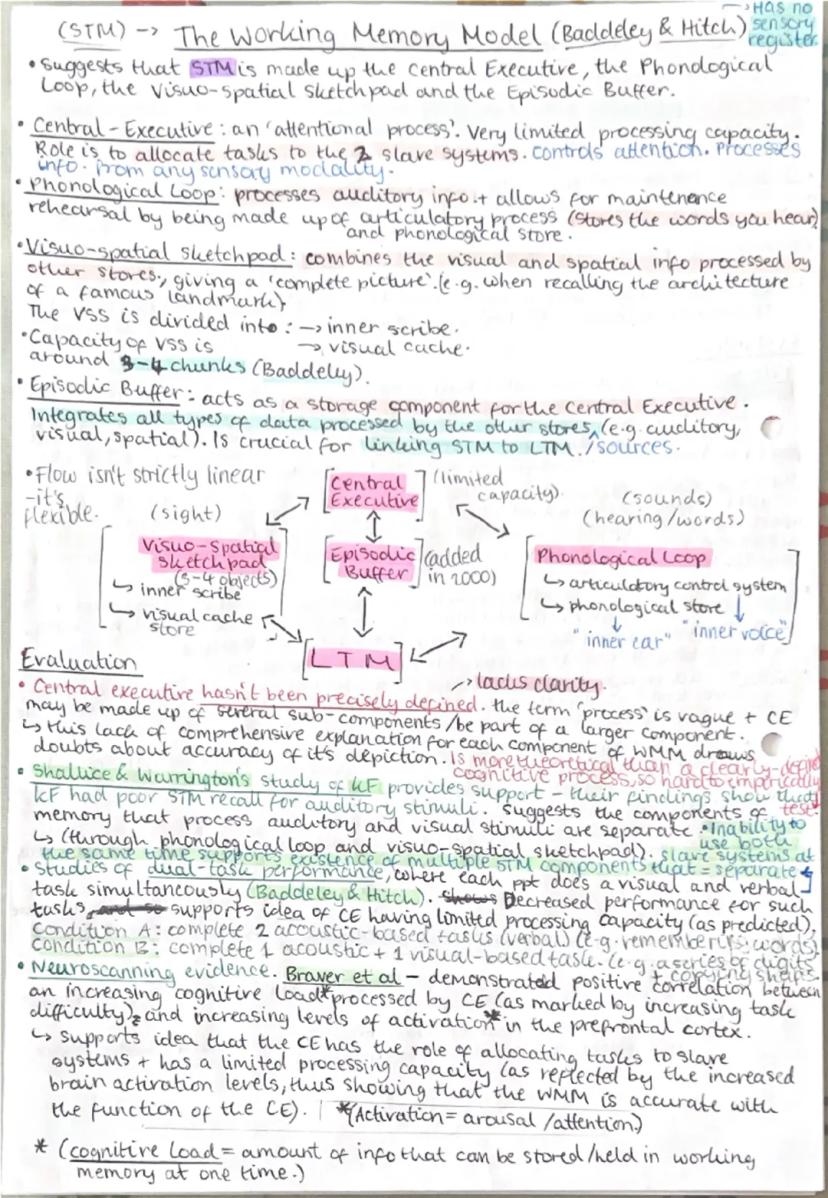 (STM) → The Working Memory Model (Baddeley & Hitch) → Has no sensory register
• Suggests that STM is made up the Central Executive, the Phonological
Loop, the Visuo-spatial Sketchpad and the Episodic Buffer.
• Central-Executive: an 'attentional process'. Very limited processing capacity.
Role is to allocate tasks to the 2 slave systems. controls attention. Processes
info. from any sensory modality.
• Phonological Loop: processes auditory info + allows for maintenance
rehearsal by being made up of articulatory process (stores the words you hear)
and phonological store.
• Visuo-spatial sketchpad: combines the visual and spatial info processed by
other stores, giving a 'complete picture'. (e.g. when recalling the architecture
of a famous landmark)
The VSS is divided into: → inner scribe.
• Capacity of VSS is → visual cache.
around 3-4 chunks (Baddeley).
• Episodic Buffer: acts as a storage component for the Central Executive.
Integrates all types of data processed by the other stores (e.g. auditory,
visual, spatial). Is crucial for linking STM to LTM. /sources.
• Flow isn't strictly linear
- it's
flexible.
[Central Executive] (limited capacity).
(sight)
(sounds)
(hearing/words)
[Visuo-Spatial Sketchpad
(3-4 objects)
↳ inner scribe
↳ visual cache store]
[Episodic Buffer] (added in 2000)
[Phonological Loop
↳ articulatory control system
↳ phonological store
"inner ear" "inner voice"]
[LTM]
Evaluation
• Central executive hasn't been precisely defined. → lacks clarity. the term 'process' is vague + CE
may be made up of several sub-components/be part of a larger component.
↳ this lack of comprehensive explanation for each component of WMM draws
doubts about accuracy of it's depiction. Is more theoretical than a clearly-defined
cognitive process, so hard to empirically test.
• Shallice & Warrington's study of KF provides support - their findings show that
KF had poor STM recall for auditory stimuli. Suggests the components of
memory that process auditory and visual stimuli are separate.
↳ (through phonological loop and visuo-spatial sketchpad). • Inability to use both slave systems at
the same time supports existence of multiple STM components that = separate
• Studies of dual-task performance, where each ppt does a visual and verbal
task simultaneously (Baddeley & Hitch). shows Decreased performance for such
tasks, and so supports idea of CE having limited processing capacity (as predicted).
Condition A: complete 2 acoustic-based tasks (verbal) (e.g. remembering words)
Condition B: complete 1 acoustic + 1 visual-based task. (e.g. a series of digits + copying shapes.
• Neuroscanning evidence. Braver et al - demonstrated positive correlation between
an increasing cognitive load* processed by CE (as marked by increasing task
difficulty), and increasing levels of activation* in the prefrontal cortex.
↳ supports idea that the CE has the role of allocating tasks to slave
systems + has a limited processing capacity (as reflected by the increased
brain activation levels, thus showing that the WMM is accurate with
the function of the CE). *(Activation = arousal/attention)
* (cognitive load = amount of info that can be stored/held in working
memory at one time.)